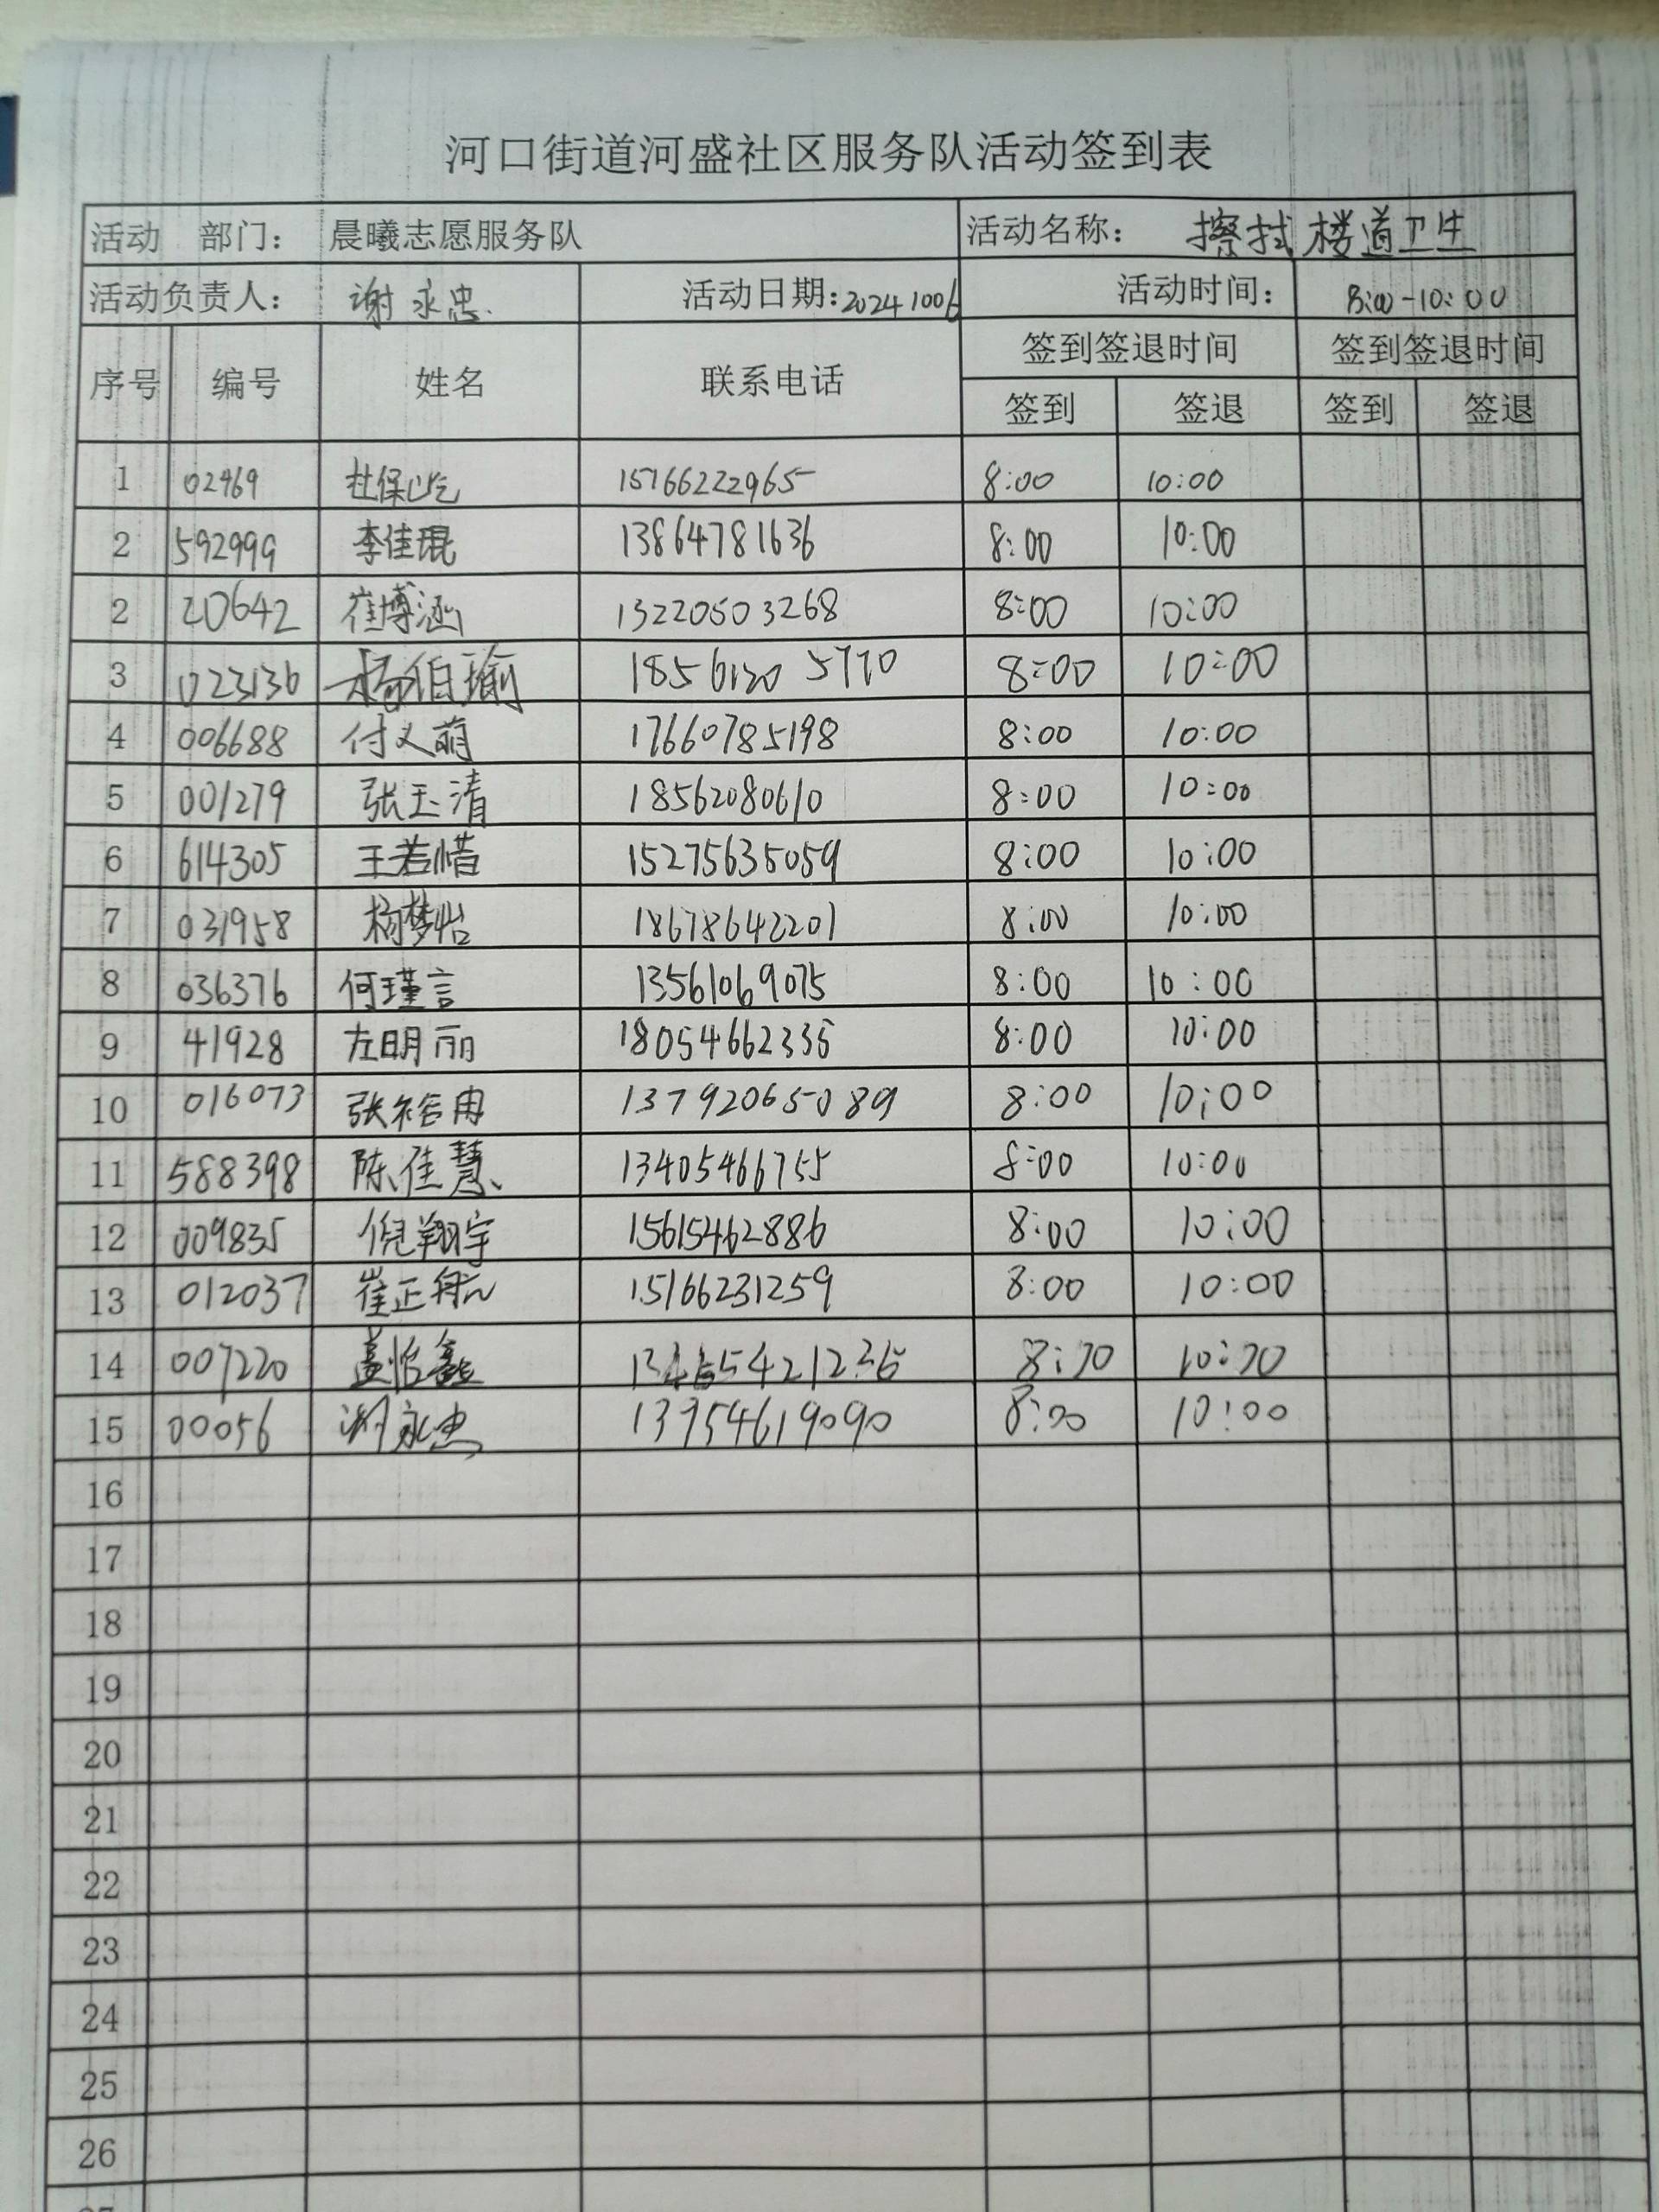 河口街道河盛社区服务队活动签到表
活动 部门： 晨曦志愿服务队 活动名称： 擦拭楼道卫生
活动负责人： 谢永忠 活动日期：20241006 活动时间： 8:00-10:00
序号 编号 姓名 联系电话 签到签退时间 签到签退时间
签到 签退 签到 签退
1 02469 杜保屹 15766222965 8:00 10:00
2 592999 李佳琨 13864781636 8:00 10:00
2 20642 崔博涵 13220503268 8:00 10:00
3 023136 杨伯瑜 18561205770 8:00 10:00
4 006688 付义萌 17660785198 8:00 10:00
5 001279 张玉清 18562080610 8:00 10:00
6 614305 王若惜 15275635059 8:00 10:00
7 031958 杨梦怡 18678642201 8:00 10:00
8 036376 何瑾言 13561069075 8:00 10:00
9 41928 左明丽 18054662335 8:00 10:00
10 016073 张裕冉 13792065089 8:00 10:00
11 588398 陈佳慧 13405466755 8:00 10:00
12 009835 倪翔宇 15615462886 8:00 10:00
13 012037 崔正航 15166231259 8:00 10:00
14 007220 盖怡鑫 8:00 10:00
15 00056 谢永忠 13954619090 8:00 10:00
16
17
18
19
20
21
22
23
24
25
26